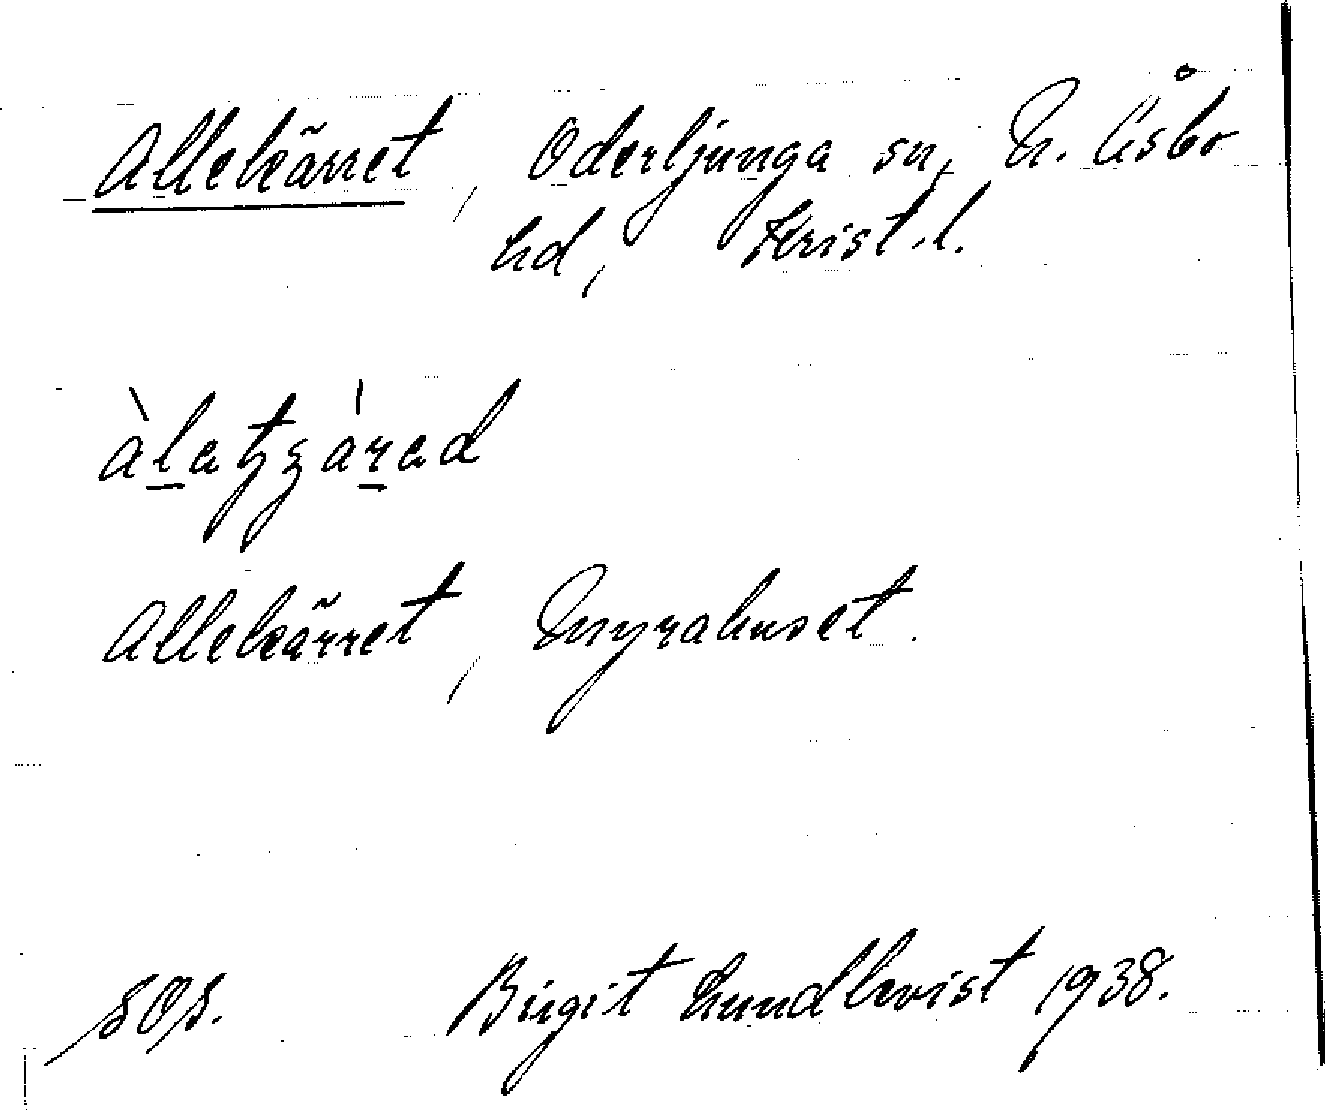 Allekärret, Oderljunga sn, N. Åsbo
hd, Krist. l.
Allekärret, Smyrahuset.
Birgit Lundkvist 1938.